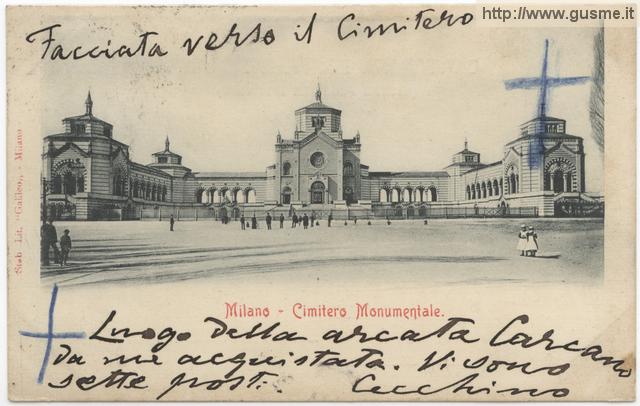 http://www.gusme.it
Facciata verso il Cimitero
Stab. Lit. "Galileo" - Milano
Milano - Cimitero Monumentale.
Luogo della arcata Carcano
da me acquistata. Vi sono
sette posti. Cecchino